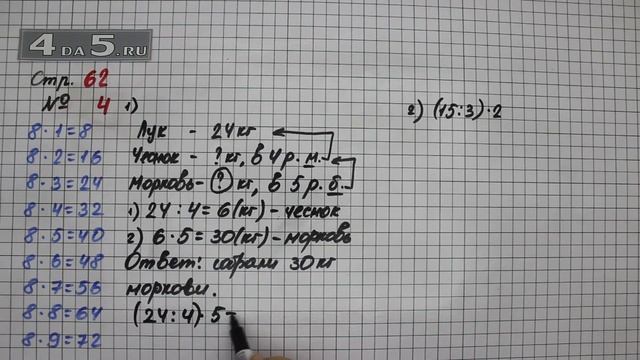 4 DA 5.RU
Стр. 62
№ 4 1)
8·1=8
8·2=16
8·3=24
8·4=32
8·5=40
8·6=48
8·7=56
8·8=64
8·9=72
Лук - 24 кг
Чеснок - ? кг, в 4 р. м.
Морковь - ? кг, в 5 р. б.
1) 24 : 4 = 6 (кг) - чеснок
2) 6 · 5 = 30 (кг) - морковь
Ответ: собрали 30 кг
моркови.
(24 : 4) · 5 =
2) (15:3)·2